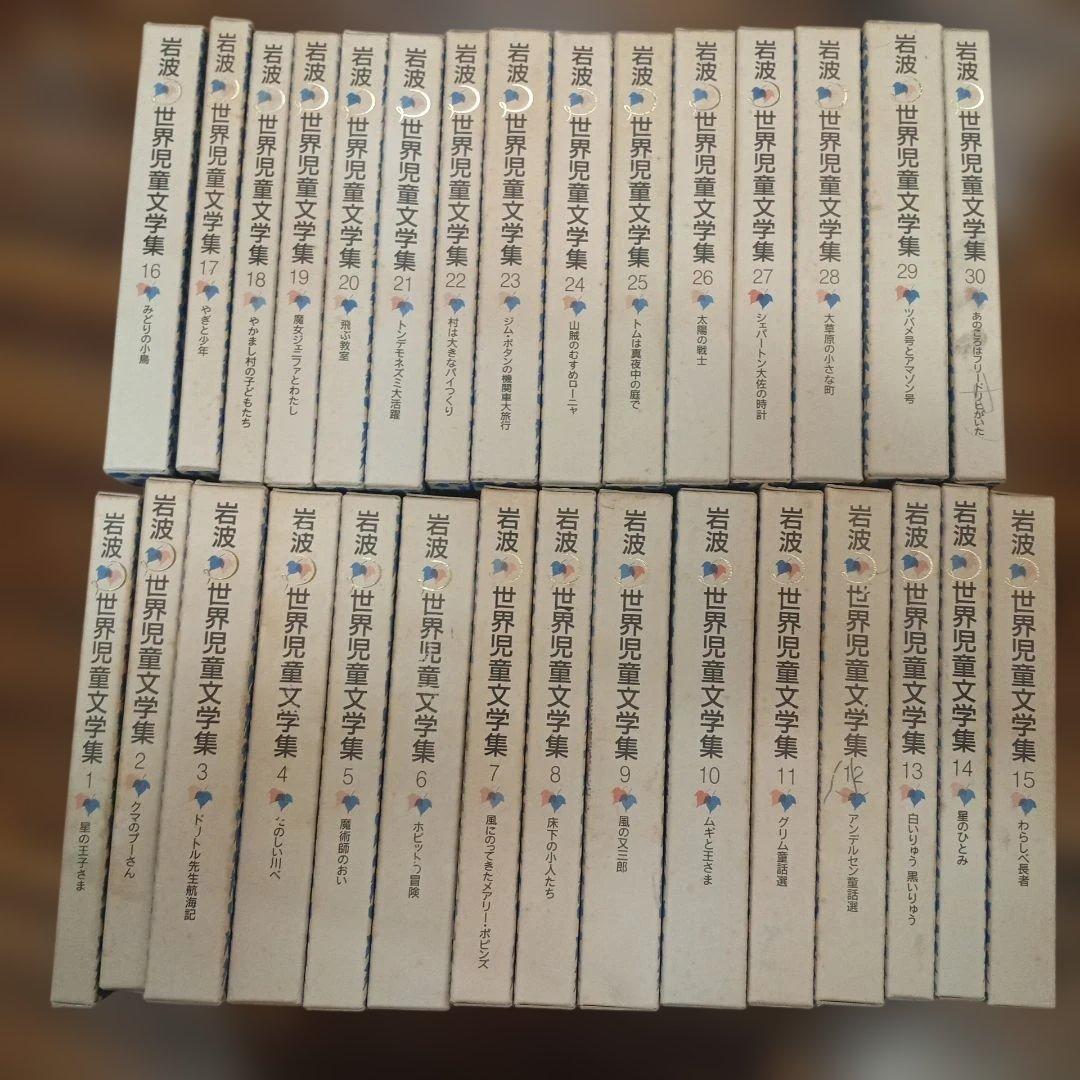 岩波 世界児童文学集 16 みどりの小鳥
岩波 世界児童文学集 17 やぎと少年
岩波 世界児童文学集 18 やかまし村の子どもたち
岩波 世界児童文学集 19 魔女ジェニファとわたし
岩波 世界児童文学集 20 飛ぶ教室
岩波 世界児童文学集 21 トンデモネズミ大活躍
岩波 世界児童文学集 22 村は大きなパイつくり
岩波 世界児童文学集 23 ジム・ボタンの機関車大旅行
岩波 世界児童文学集 24 山賊のむすめローニャ
岩波 世界児童文学集 25 トムは真夜中の庭で
岩波 世界児童文学集 26 太陽の戦士
岩波 世界児童文学集 27 シェパートン大佐の時計
岩波 世界児童文学集 28 大草原の小さな町
岩波 世界児童文学集 29 ツバメ号とアマゾン号
岩波 世界児童文学集 30 あのころはフリードリヒがいた
岩波 世界児童文学集 1 星の王子さま
岩波 世界児童文学集 2 クマのプーさん
岩波 世界児童文学集 3 ドリトル先生航海記
岩波 世界児童文学集 4 たのしい川べ
岩波 世界児童文学集 5 魔術師のおい
岩波 世界児童文学集 6 ホビットの冒険
岩波 世界児童文学集 7 風にのってきたメアリー・ポピンズ
岩波 世界児童文学集 8 床下の小人たち
岩波 世界児童文学集 9 風の又三郎
岩波 世界児童文学集 10 ムギと王さま
岩波 世界児童文学集 11 グリム童話選
岩波 世界児童文学集 12 アンデルセン童話選
岩波 世界児童文学集 13 白いりゅう 黒いりゅう
岩波 世界児童文学集 14 星のひとみ
岩波 世界児童文学集 15 わらしべ長者